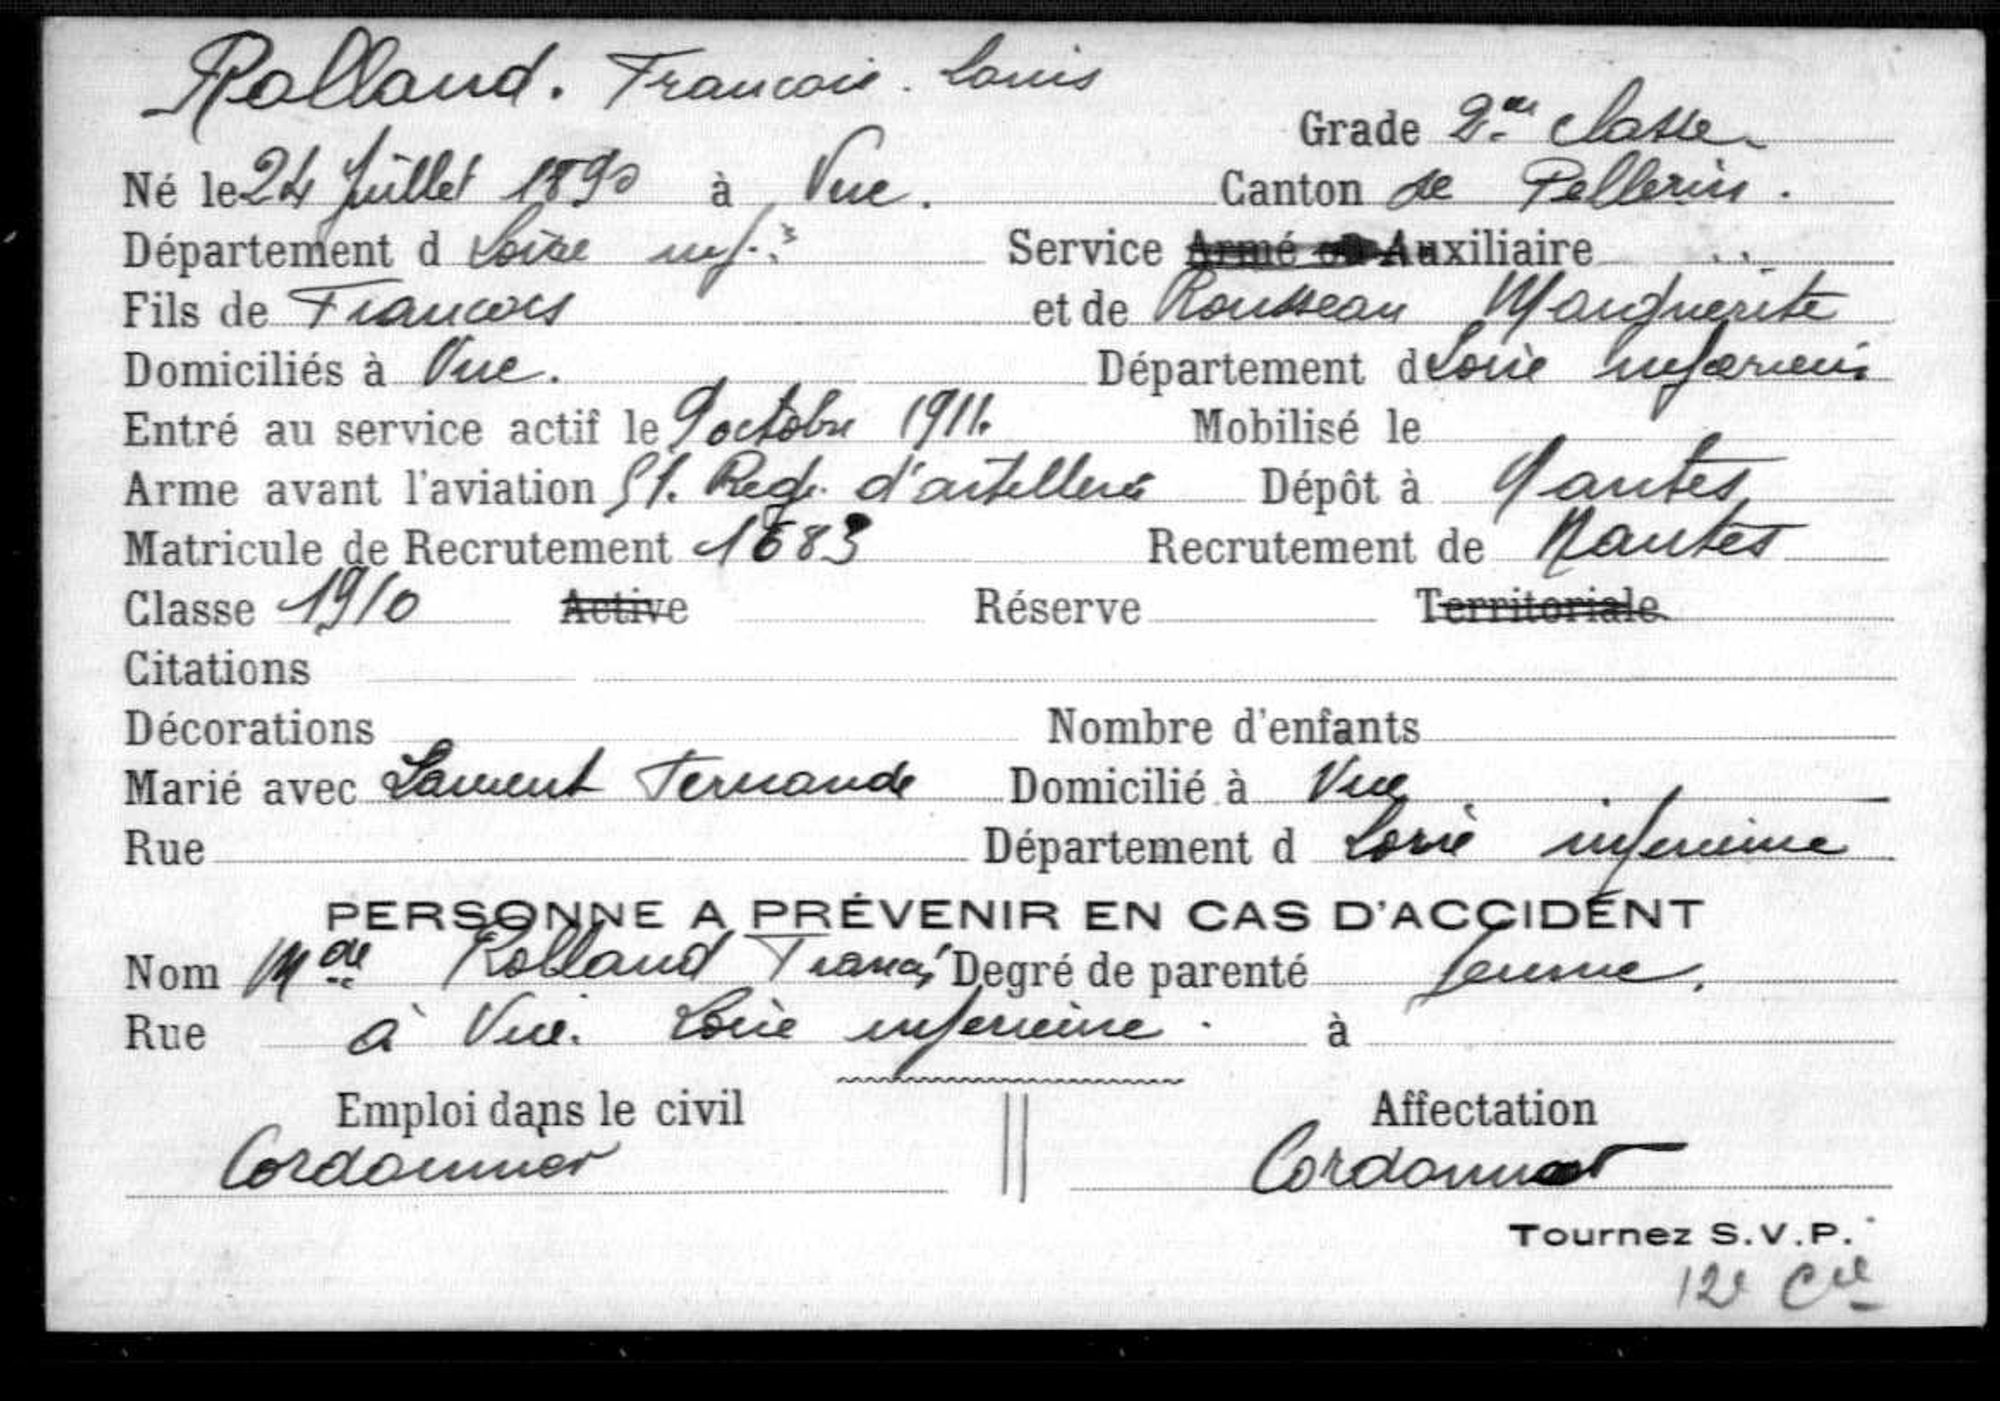 Rolland. Francois. Louis
Grade 2me classe
Né le 24 Juillet 1890 à Vue. Canton de Pellerin.
Département d Loire infre Service Armé ou Auxiliaire
Fils de Francois et de Rousseau Marguerite
Domiciliés à Vue. Département d Loire inferieure
Entré au service actif le 9 octobre 1911. Mobilisé le
Arme avant l'aviation 51. Regt. d'artillerie Dépôt à Nantes
Matricule de Recrutement 1683 Recrutement de Nantes
Classe 1910 Active Réserve Territoriale
Citations
Décorations Nombre d'enfants
Marié avec Laurent Fernande Domicilié à Vue
Rue Département d Loire inferieure
PERSONNE A PRÉVENIR EN CAS D'ACCIDENT
Nom Mde Rolland Francois Degré de parenté femme.
Rue à Vue. Loire inferieure. à
Emploi dans le civil Affectation
Cordonnier Cordonnier
Tournez S.V.P.
12e Cie